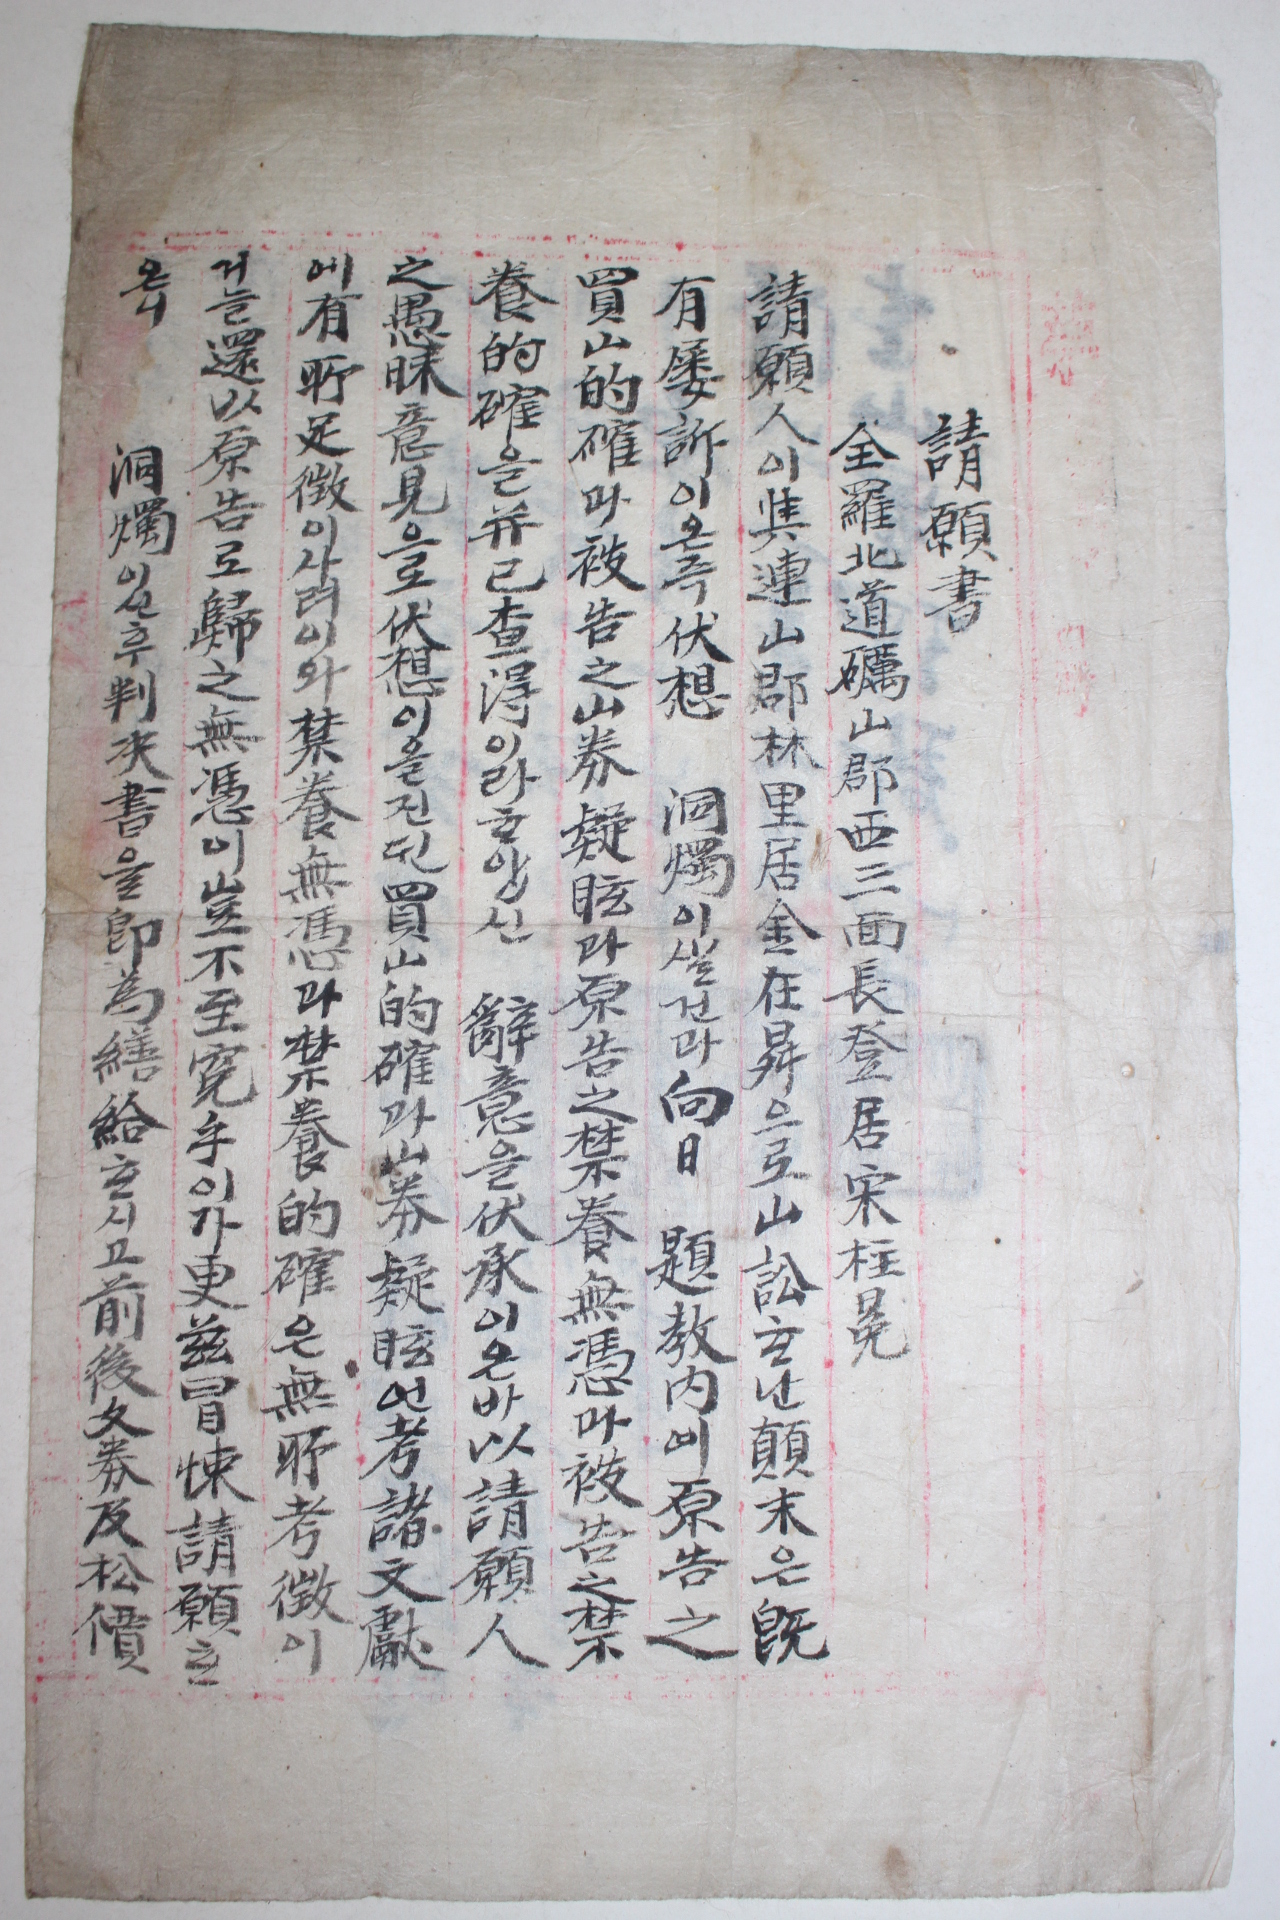 請願書
全羅北道礪山郡西三面長登居宋柱冕
請願人이與連山郡林里居金在昇으로山訟ᄒᆞᄂᆞᆫ顛末은旣
有屡訴이온즉伏想 洞燭이실건과向日 題敎內ᄇᆡ原告之
買山的確과被告之山券疑眩과原告之禁養無憑과被告之禁
養的確을并已査得이라ᄒᆞ압신 辭意을伏承이온바以請願人
之愚昧意見으로伏想이올진ᄃᆡᆫ買山的確과山券疑眩언考諸文獻
에有所足徵이사려이와禁養無憑과禁養的確은無所考徵이
거늘還以原告로歸之無憑이豈不至寃乎이가更玆冒悚請願ᄒᆞ
온니 洞燭이신후判决書을卽爲繕給ᄒᆞ시고前後文券及松價